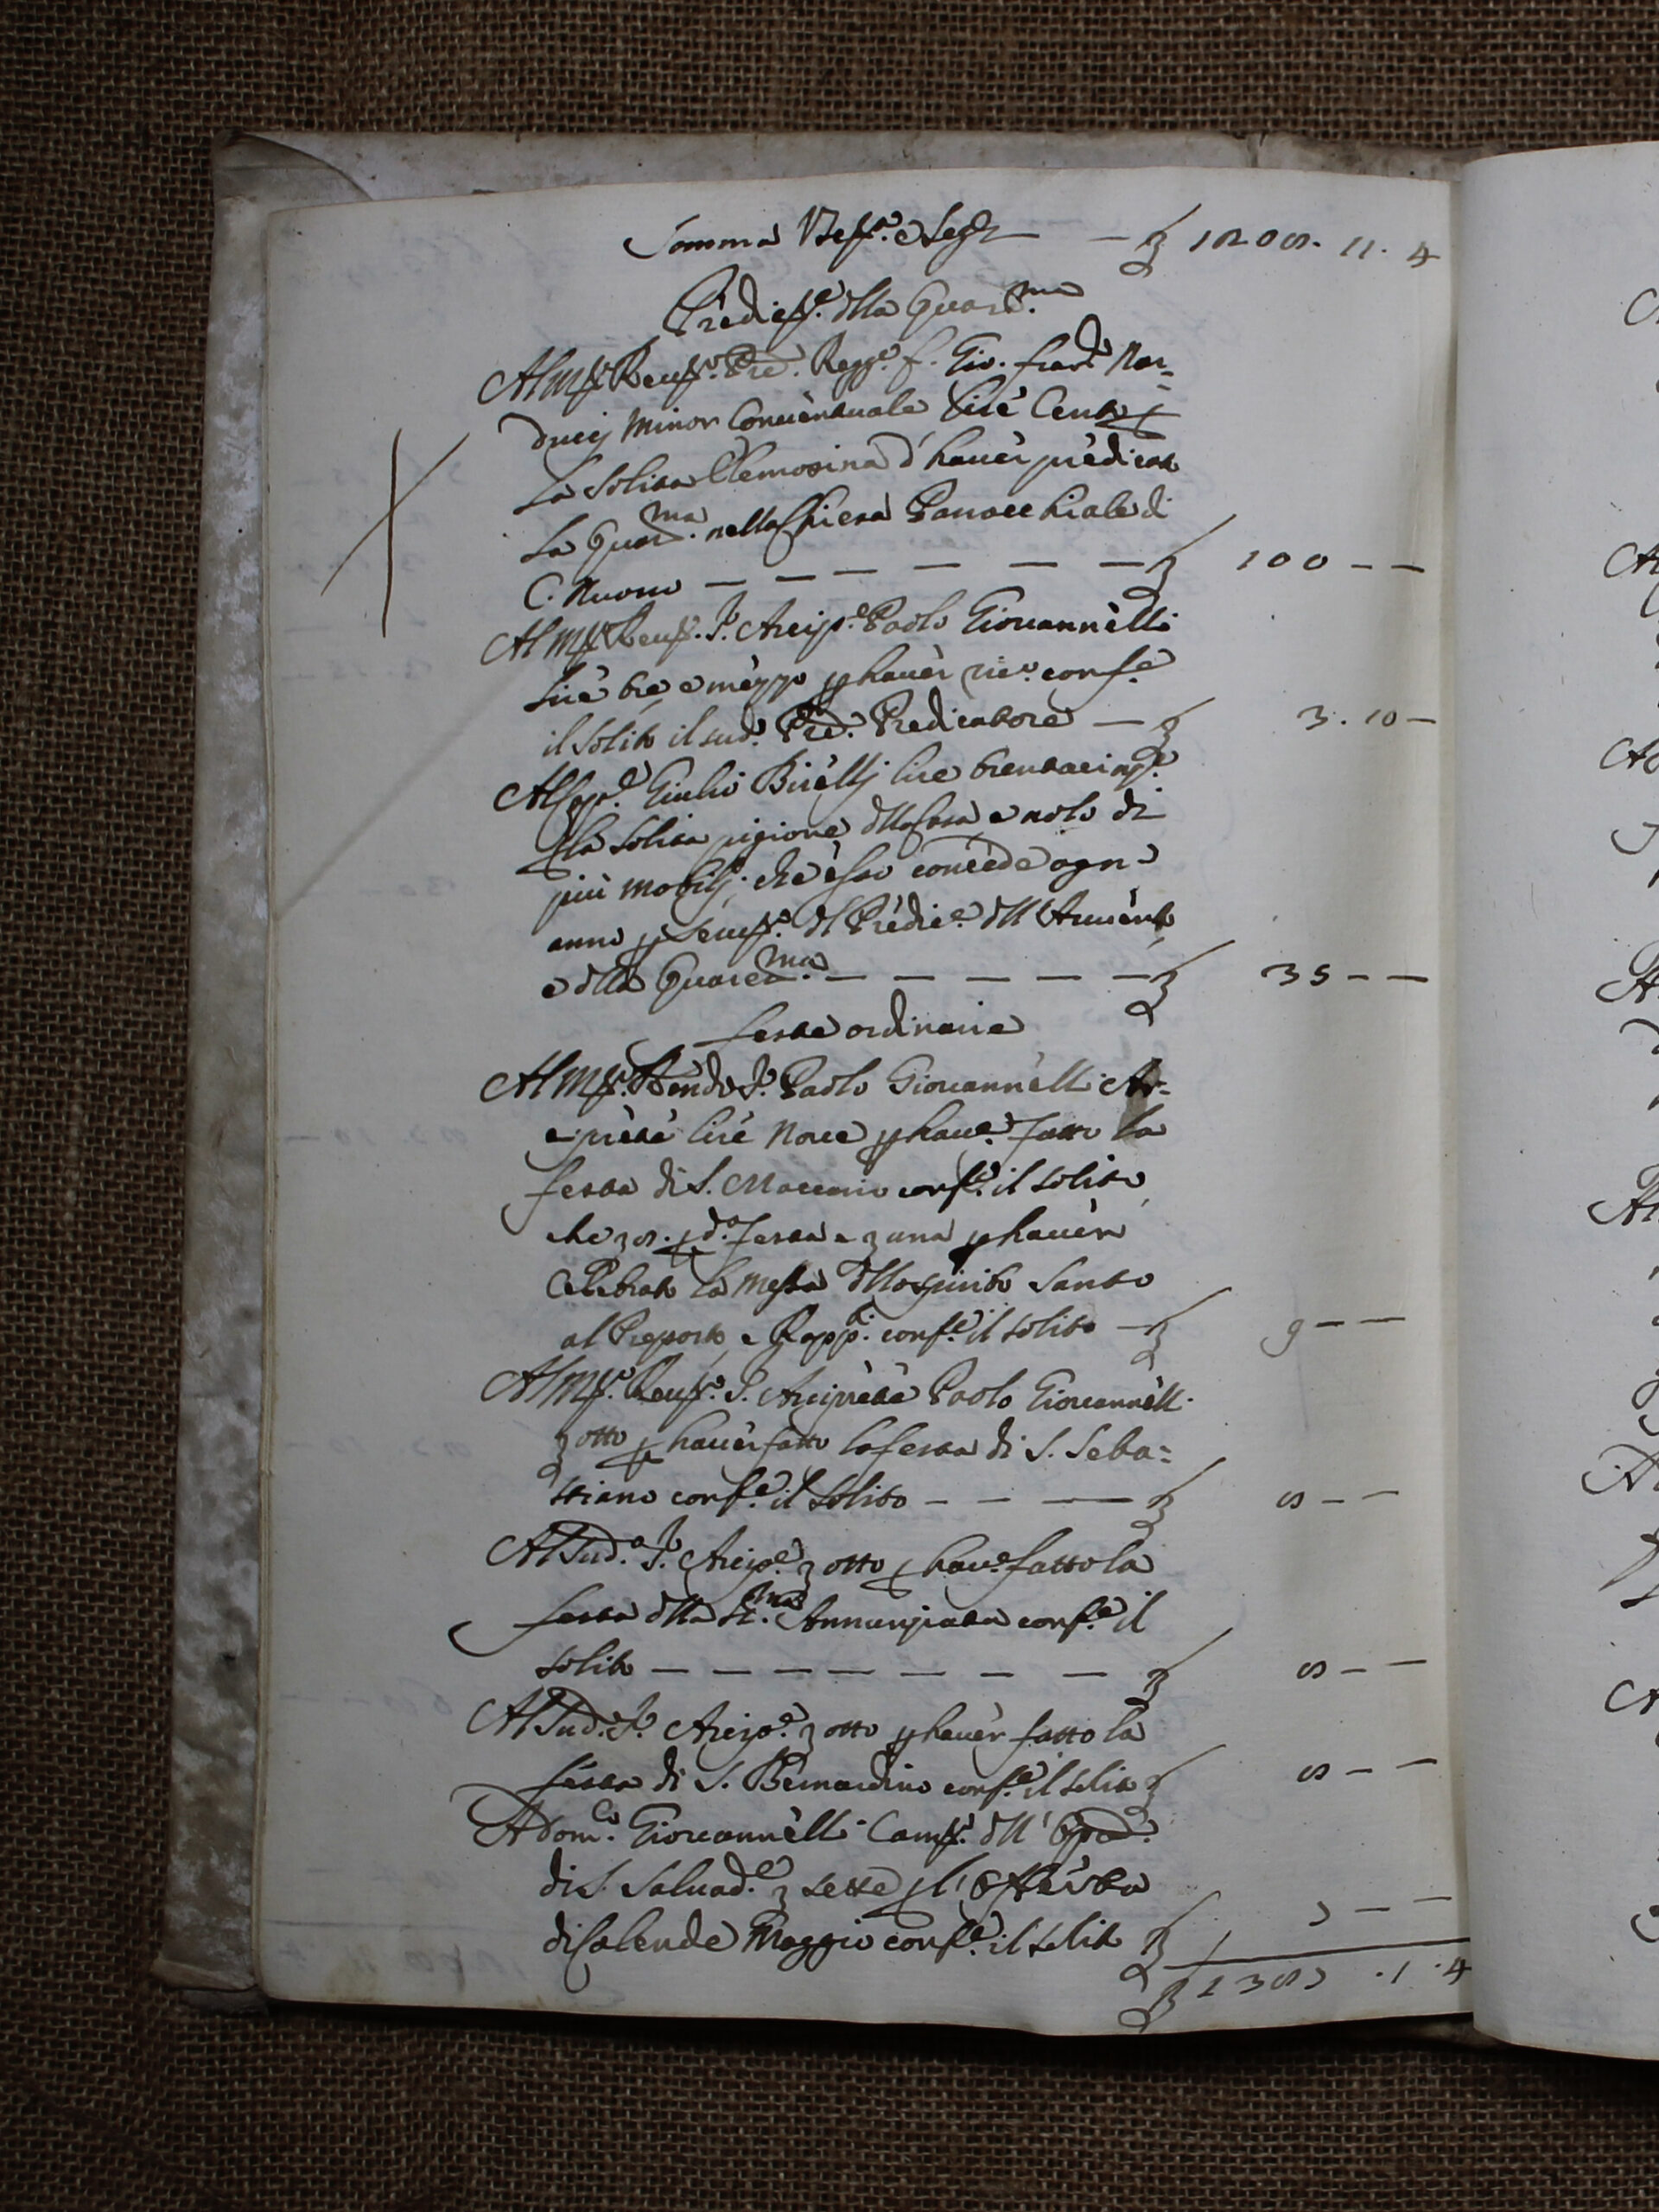 Somma Retr.o e Segt — £ 1208. 11. 4
Predic.e dlla Quar.ma
Al M.to Reu.do Pre. Regg.e f. Gio. Fran.
ducij Minor Conuentuale Lire Cento p
la solita Elemosina d'hauer predicato
la Quar.ma nella Chiesa Parrocchiale di
C. Nuouo — — — — — — £ 100 — —
Al M.to Reu.do S.r Arcip.e Paolo Giouannelli
Lire tre e mezzo p hauer ric.o conf.e
il solito il sud.o Pre. Predicatore — £ 3. 10 —
Al Giulio Birelli lire trentacinq.e
p la solita pigione dlla Casa e nolo di
più mobilj che esso concede ogn
anno p seru.o dl Predic.e dll'Auuento
e dlla Quares.ma — — — — — £ 35 — —
Feste ordinarie
Al M.to Rendo S.r Paolo Giouannelli Ar=
ciprete lire Noue p hau.e fatto la
festa di S. Maccario conf.e il solito
che £ 8. p d.a festa e £ una p hauer
Celebrato la Messa dllo Spirito Santo
al Preposto e Rapp.ti conf.e il solito — £ 9 — —
Al M.to Reu.do S.r Arciprete Paolo Giouannelli
£ otto p hauer fatto la festa di S. Seba=
stiano conf.e il solito — — — £ 8 — —
Al Sud.o S.r Arcip.e £ otto p hau.e fatto la
festa dlla SS.ma Annunziata conf.e il
solito — — — — — — — £ 8 — —
Al Sud.o S.r Arcip.e £ otto p hauer fatto la
festa di S. Bernardino conf.e il solito £ 8 — —
A Dom.co Giouannelli Cam.o dll' Op.a
di S. Saluad.e £ sette p l'offerta
di Calende Maggio conf.e il solito £ 7 — —
£ 1387. 1. 4